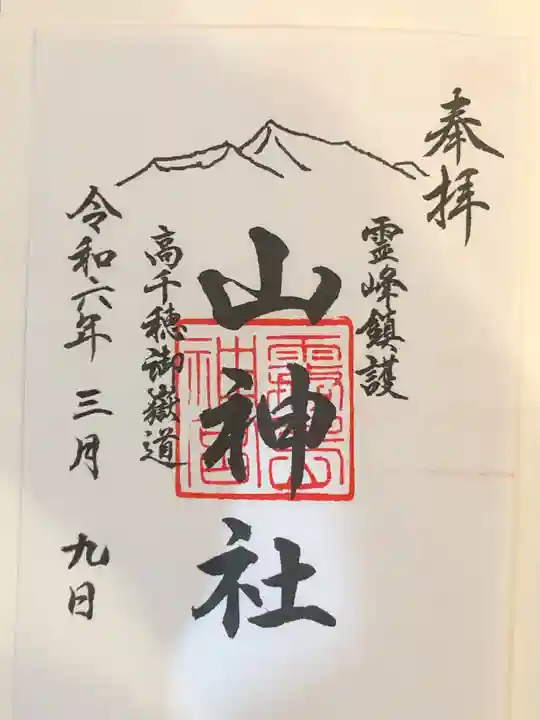 奉拝
霊峰鎮護
山神社
霧島神宮
高千穂御嶽道
令和六年三月九日